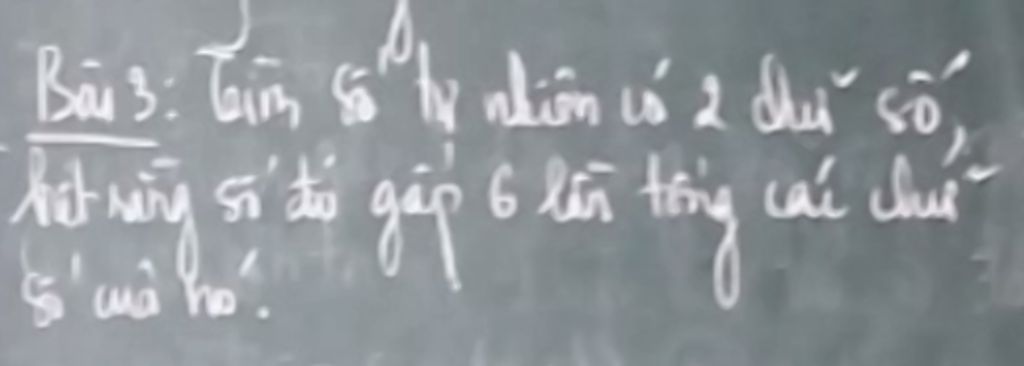 Bài 3: Tìm số tự nhiên có 2 chữ số,
biết rằng số đó gấp 6 lần tổng các chữ
số của nó.